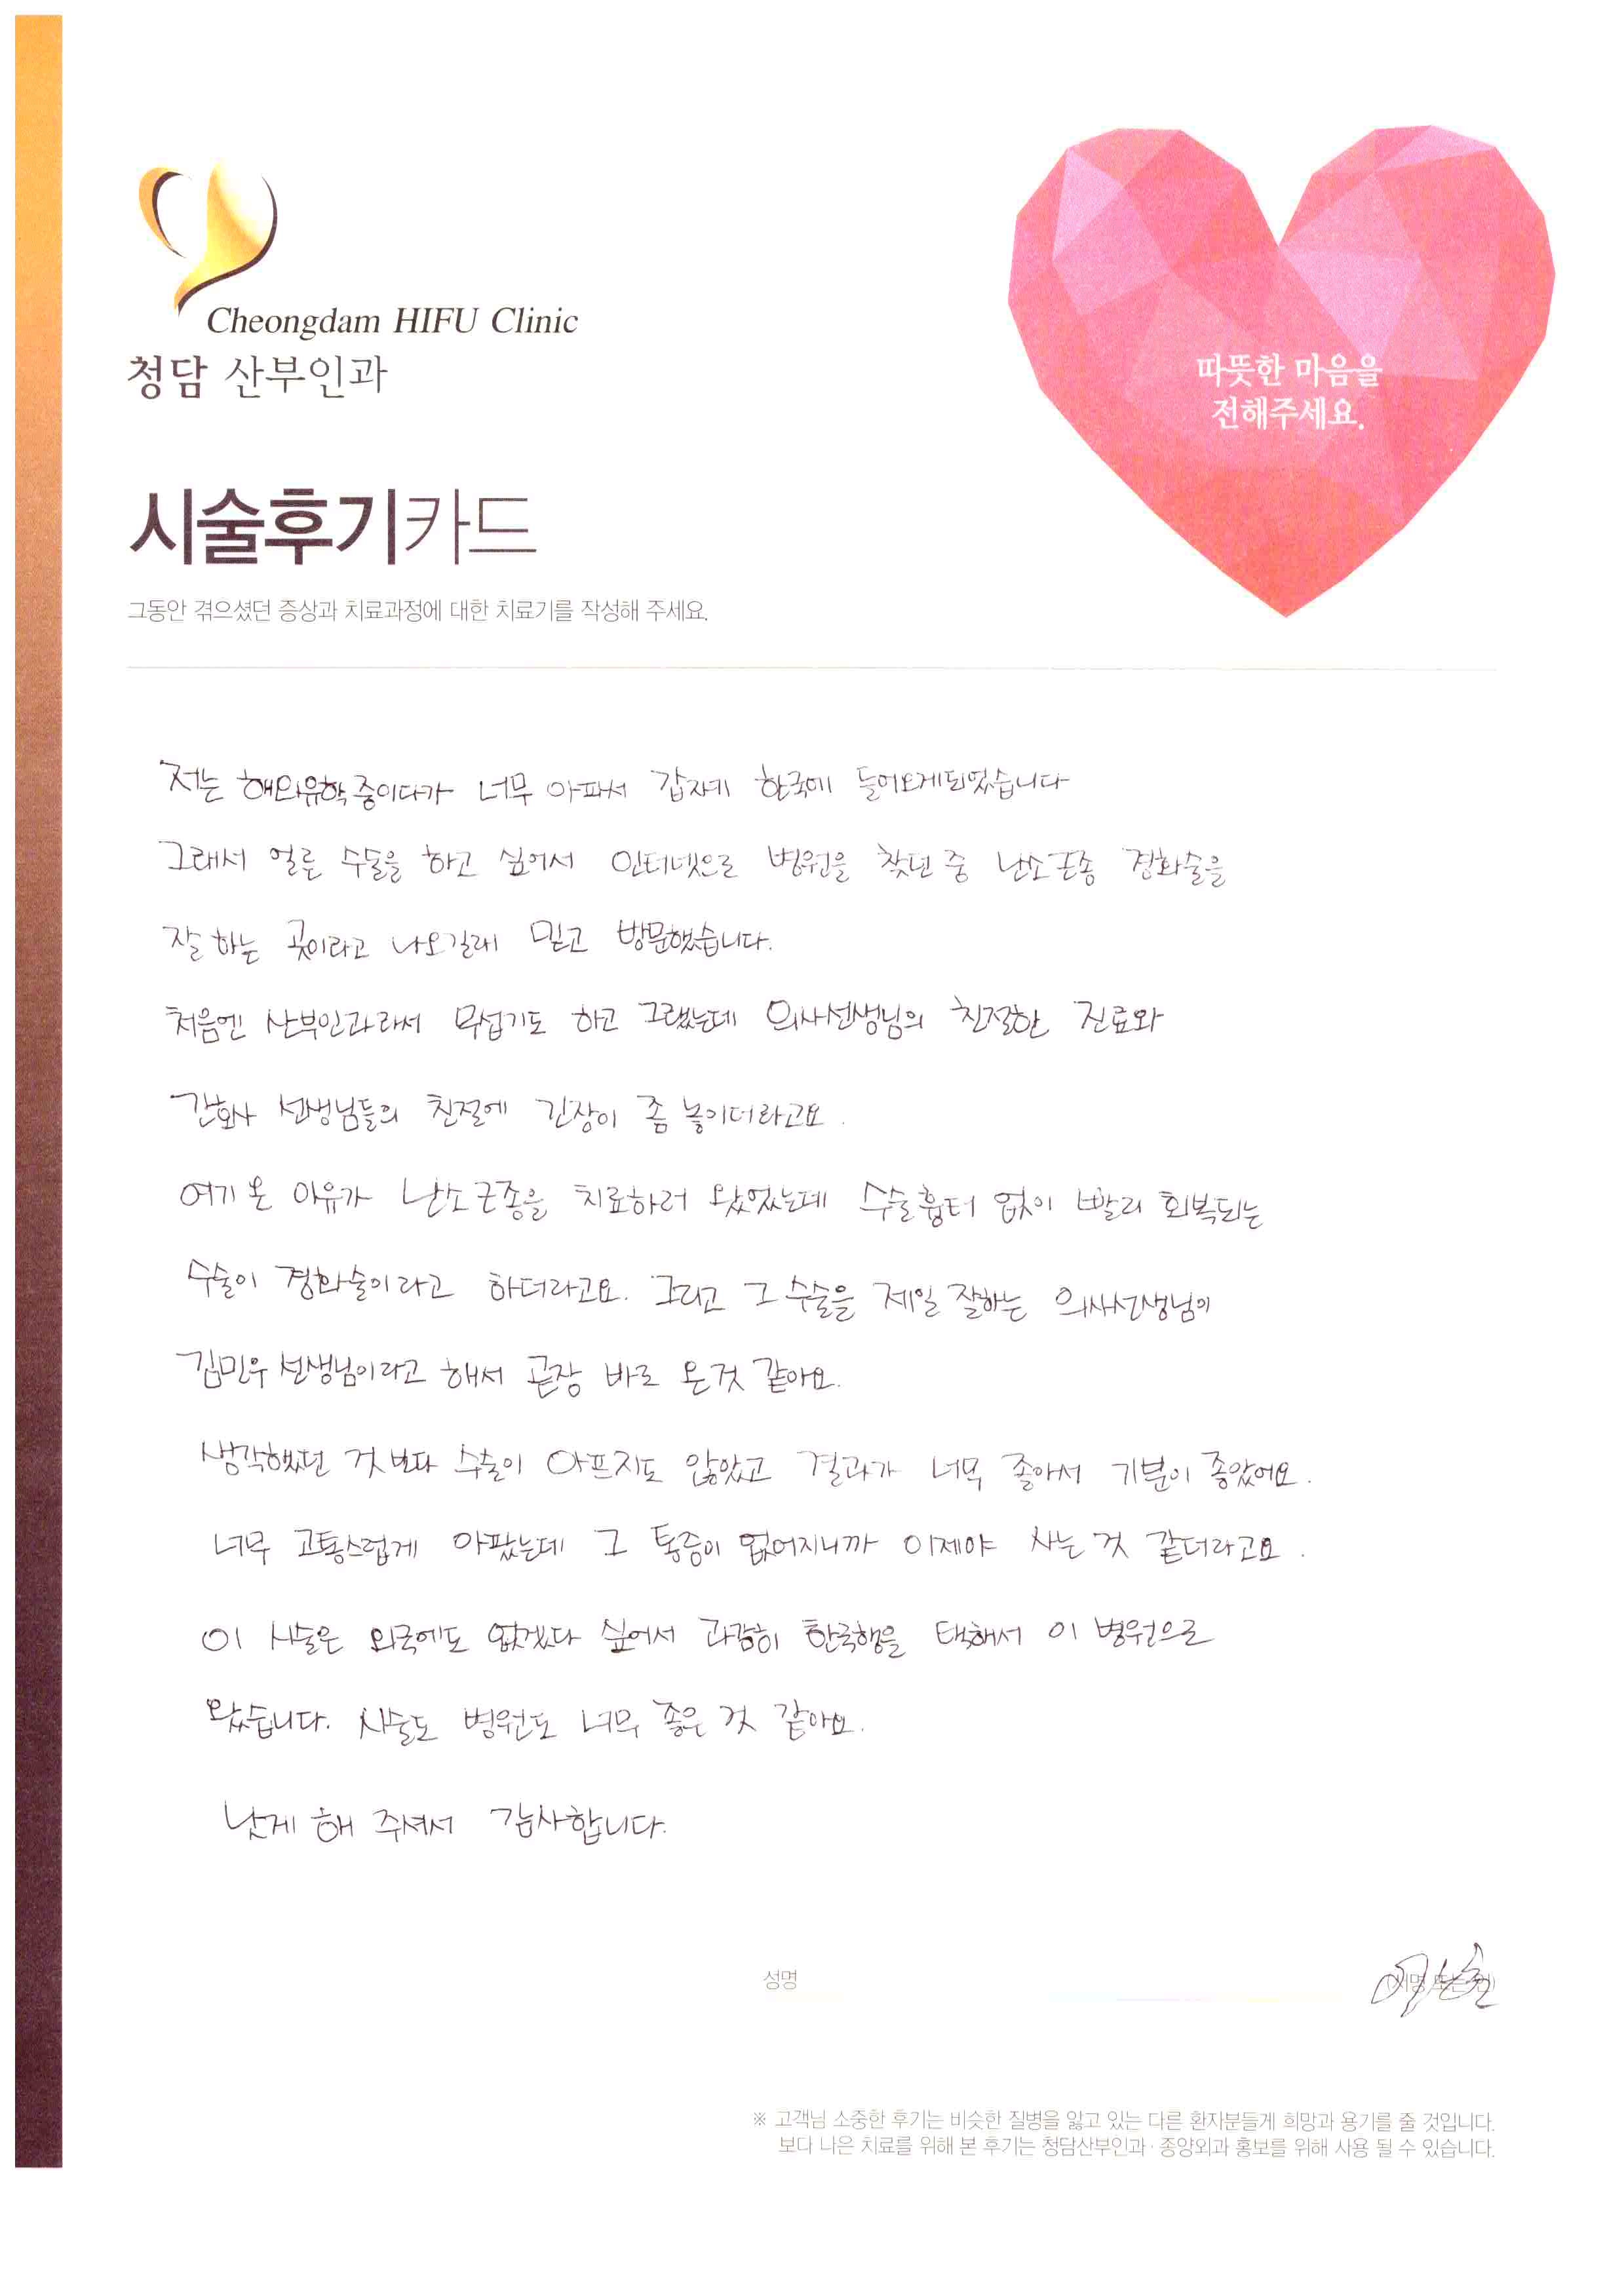 Cheongdam HIFU Clinic
청담 산부인과
따뜻한 마음을
전해주세요.
시술후기카드
그동안 겪으셨던 증상과 치료과정에 대한 치료기를 작성해 주세요.
저는 해외유학중이다가 너무 아파서 갑자기 한국에 들어오게되었습니다
그래서 얼른 수술을 하고 싶어서 인터넷으로 병원을 찾던 중 난소근종 경화술을
잘 하는 곳이라고 나오길래 믿고 방문했습니다.
처음엔 산부인과라서 무섭기도 하고 그랬는데 의사선생님의 친절한 진료와
간호사 선생님들의 친절에 긴장이 좀 놓이더라고요.
여기 온 이유가 난소근종을 치료하러 왔었는데 수술흉터 없이 빨리 회복되는
수술이 경화술이라고 하더라고요. 그리고 그 수술을 제일 잘하는 의사선생님이
김민우 선생님이라고 해서 곧장 바로 온것 같아요.
생각했던 것 보다 수술이 아프지도 않았고 결과가 너무 좋아서 기분이 좋았어요.
너무 고통스럽게 아팠는데 그 통증이 없어지니까 이제야 사는 것 같더라고요.
이 시술은 외국에도 없겠다 싶어서 과감히 한국행을 택해서 이 병원으로
왔습니다. 시술도 병원도 너무 좋은 것 같아요.
낫게 해 주셔서 감사합니다.
성명
(서명 또는 인)
※ 고객님 소중한 후기는 비슷한 질병을 앓고 있는 다른 환자분들게 희망과 용기를 줄 것입니다.
보다 나은 치료를 위해 본 후기는 청담산부인과·종양외과 홍보를 위해 사용 될 수 있습니다.